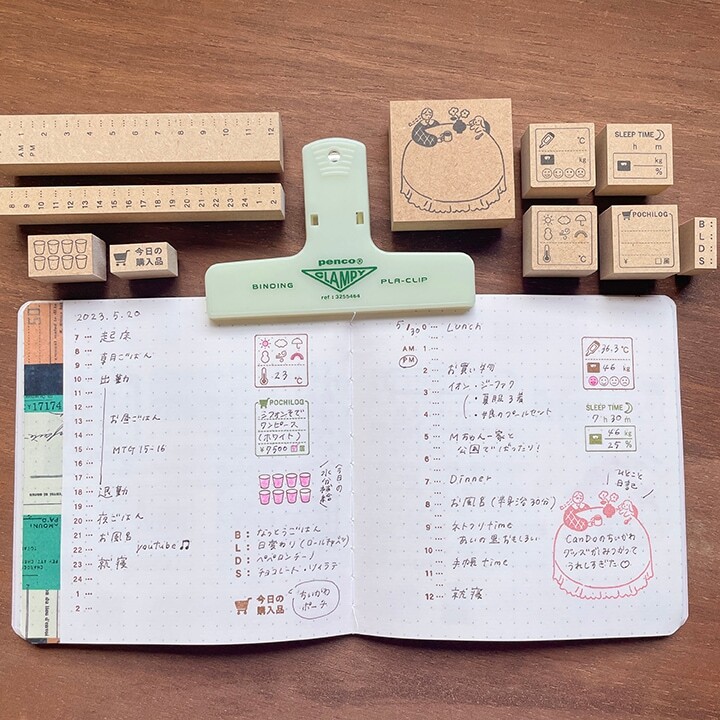 1 2 3 4 5 6 7 8 9 10 11 12
AM
PM
8 9 10 11 12 13 14 15 16 17 18 19 20 21 22 23 24 1 2
今日の
購入品
penco®
CLAMPY
BINDING PLA-CLIP
ref : 3255464
℃
kg
%
SLEEP TIME
h m
kg
%
℃
POCHILOG
¥
B :
L :
D :
S :
2023.5.20
7 起床
8 朝ごはん
9
10 出勤
11
12
13 お昼ごはん
14
15 MTG 15-16
16
17
18 退勤
19
20 夜ごはん
21 お風呂
22 youtube♫
23 就寝
24
1
2
23 ℃
POCHILOG
シフォンそで
ワンピース
(ホワイト)
¥9500
今日の
水分補給
B : なっとうごはん
L : 日替わり
D : ペペロンチーノ
S : チョコレート・ソイラテ
今日の
購入品
ちいかわ
ポーチ
5/30
Lunch
AM
PM
1
2 お買い物
3 イオン・ジーフック
・夏服3着
4
5 Mちゃん一家と
6 公園でばったり!
7 Dinner
8 お風呂 (半身浴30分)
9 ネトフリtime
10
11 手帳time
12 就寝
36.3 ℃
46 kg
SLEEP TIME
7 h 30 m
46 kg
25 %
ひとこと
日記
CanDoのちいかわ
グッズがみつかって
うれしすぎた♡
50
¥17174
AMOUNT
PAID